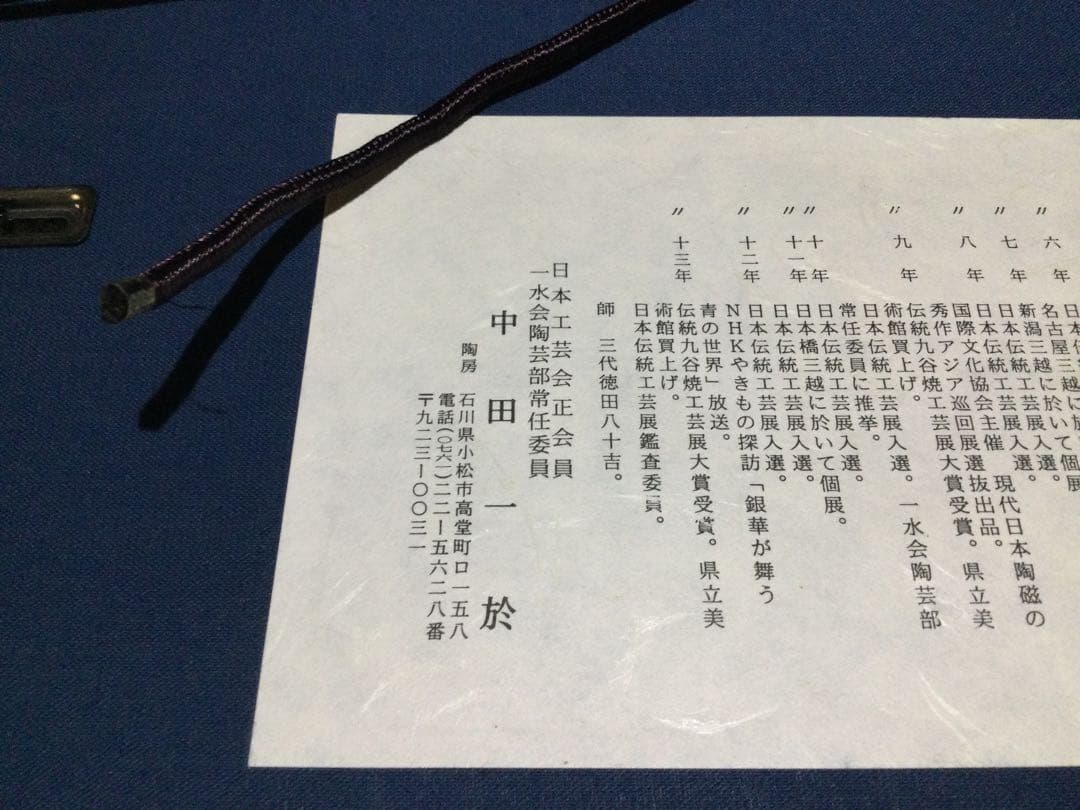 〃 六年 名古屋三越に於いて個展
新潟三越に於いて個展。
〃 七年 日本伝統工芸展入選。
〃 八年 国際文化協会主催 現代日本陶磁の
秀作アジア巡回展選抜出品。
〃 九年 伝統九谷焼工芸展大賞受賞。県立美
術館買上げ。
日本伝統工芸展入選。一水会陶芸部
常任委員に推挙。
〃 十年 日本伝統工芸展入選。
日本橋三越に於いて個展。
〃 十一年 日本伝統工芸展入選。
〃 十二年 日本伝統工芸展入選。
NHKやきもの探訪「銀華が舞う
青の世界」放送。
〃 十三年 伝統九谷焼工芸展大賞受賞。県立美
術館買上げ。
日本伝統工芸展鑑査委員。
師 三代徳田八十吉。
日本工芸会正会員
一水会陶芸部常任委員
中田一於
陶房 石川県小松市高堂町ロ一五八
電話(〇七六一)二二ー五六二八番
〒九二三ー〇〇三一